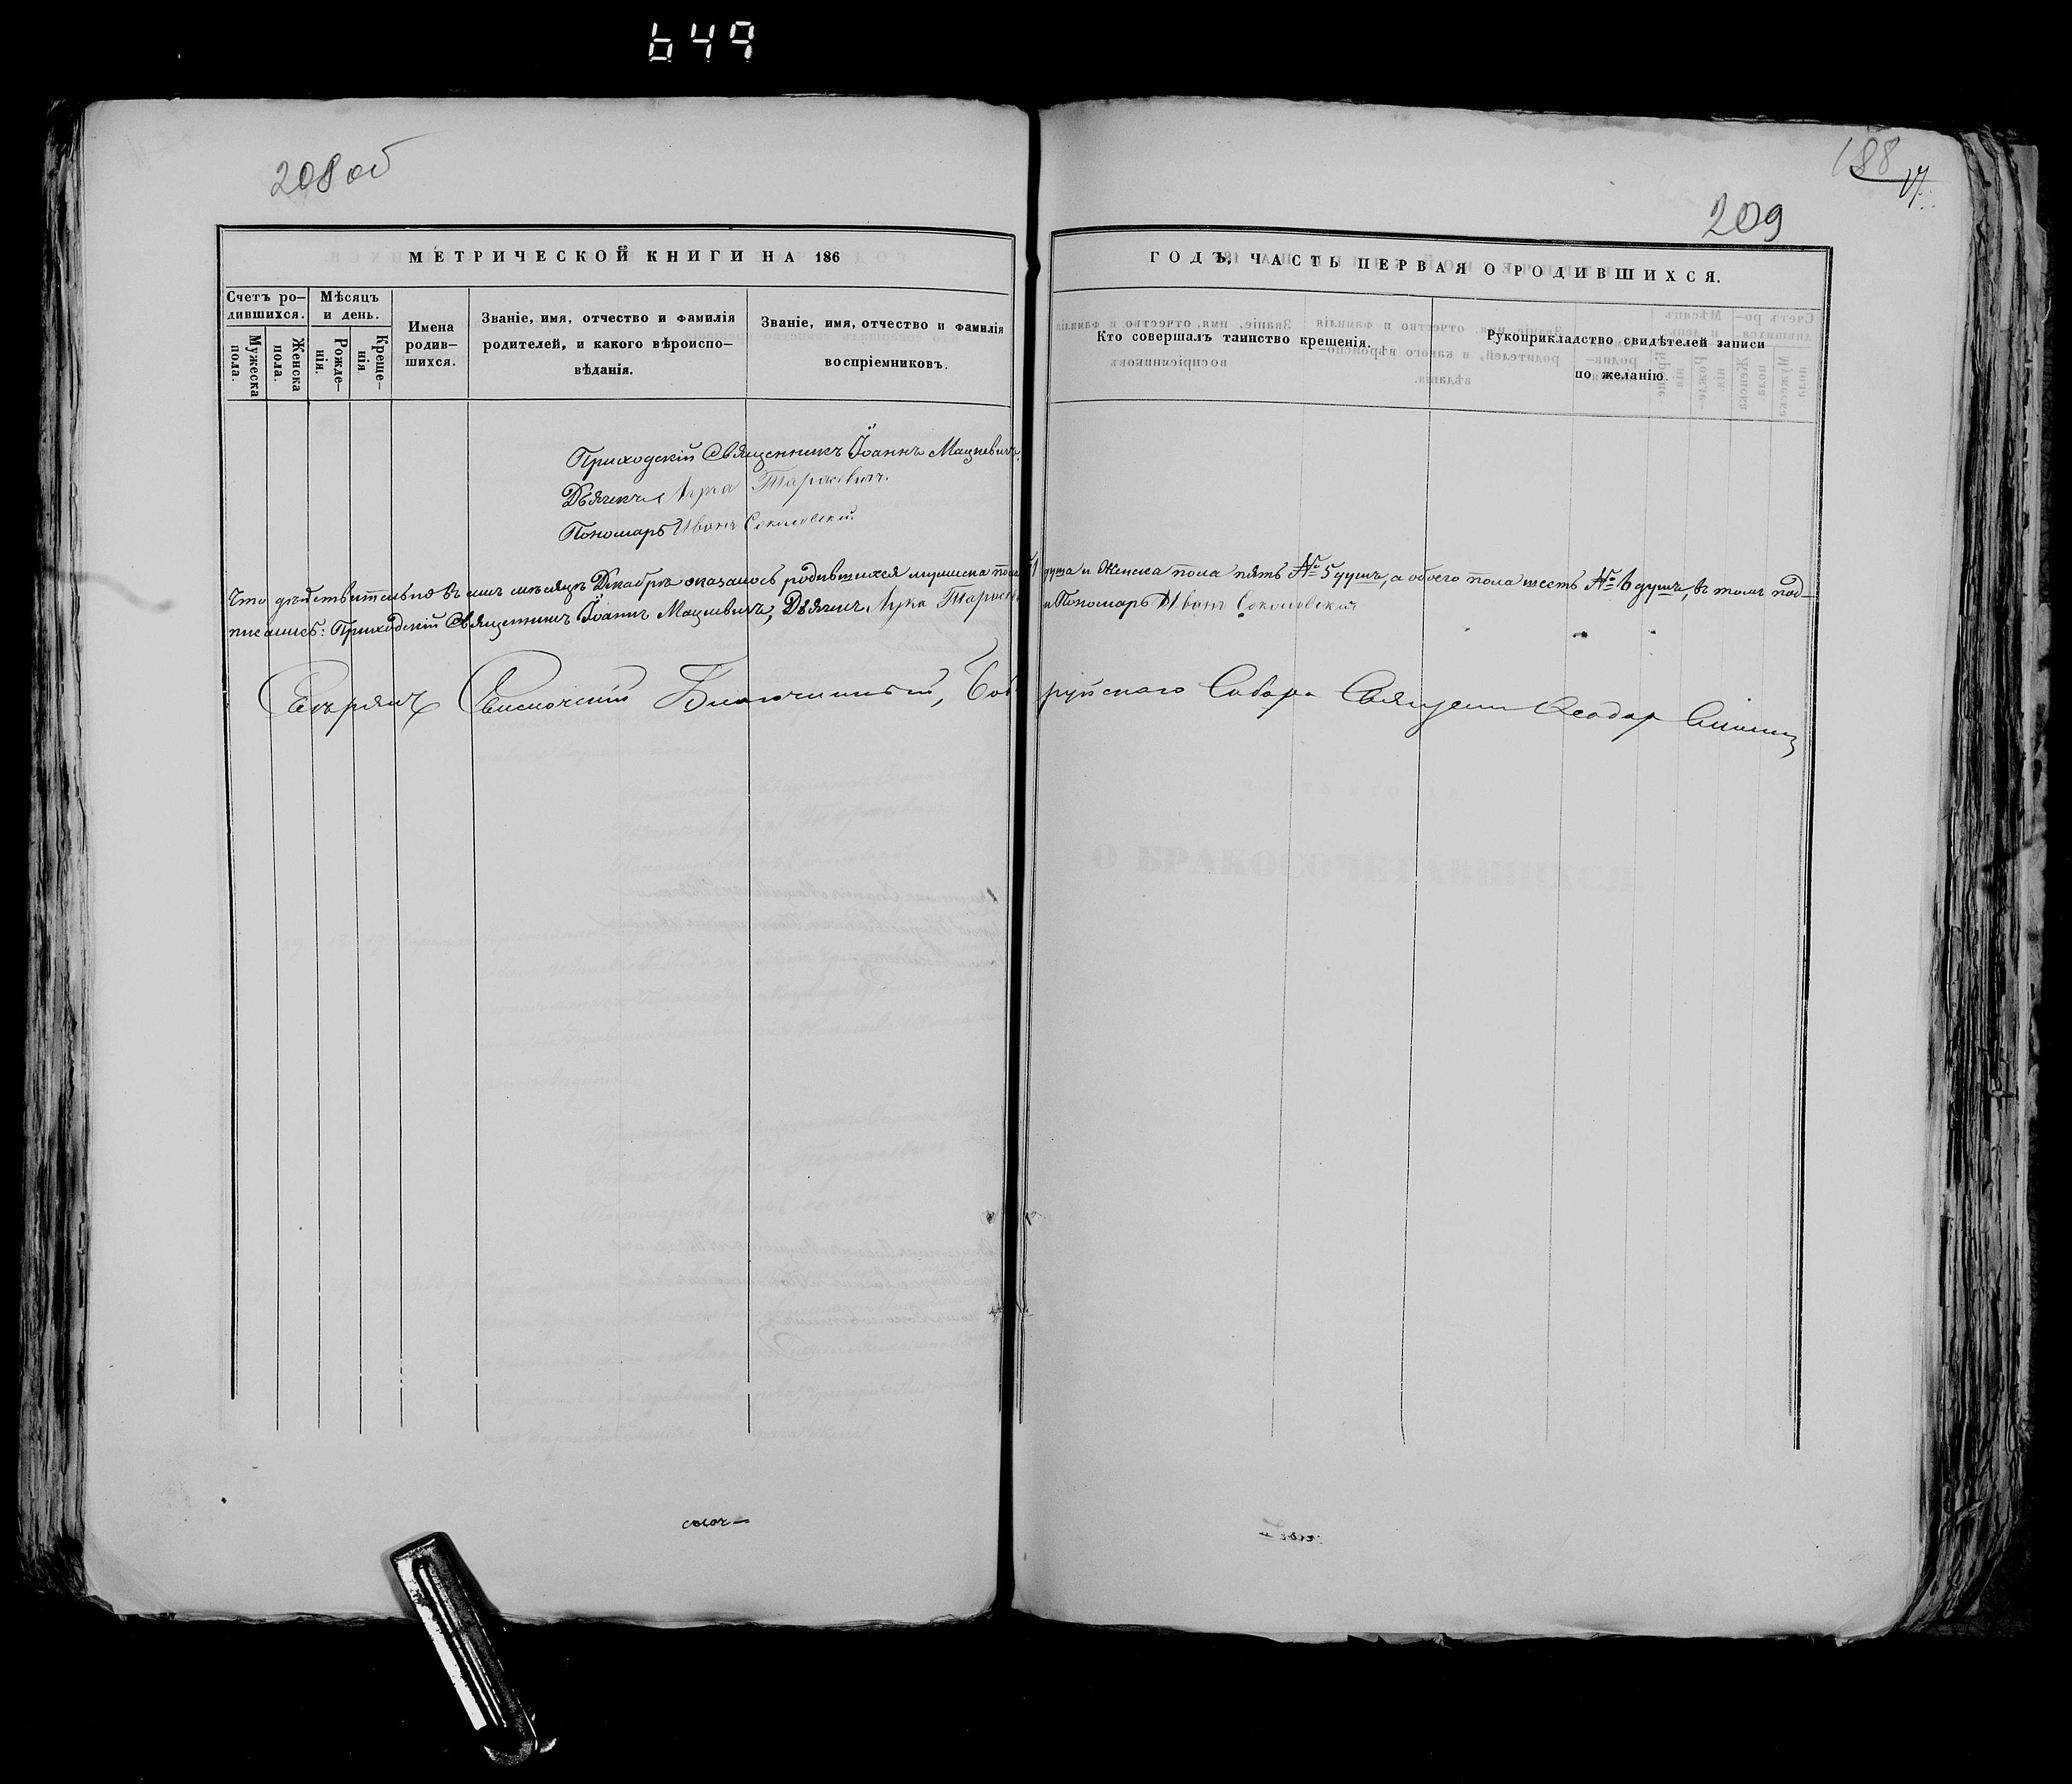 649
208 об
188
17
209
МЕТРИЧЕСКОЙ КНИГИ НА 186
ГОДЪ, ЧАСТЬ ПЕРВАЯ О РОДИВШИХСЯ.
Счетъ ро-
дившихся.
Мужеска
пола.
Женска
пола.
Мѣсяцъ
и день.
Рожде-
нія.
Креще-
нія
Имена
родив-
шихся.
Званіе, имя, отчество и фамилія
родителей, и какого вѣроиспо-
вѣданія.
Званіе, имя, отчество и фамилія
воспріемниковъ.
Кто совершалъ таинство крещенія.
Рукоприкладство свидѣтелей записи
по желанію
Приходскій Священникъ Іоаннъ Мацкевичъ.
Дьячекъ Лука Тарасевичъ.
Пономарь Иванъ Соколовскій
Что дѣйствительно въ семъ мѣсяцѣ Декабрѣ оказалось родившихся мужеска пола 1 душа и Женска пола пять № 5 душъ, а обоего пола шесть № 6 душъ, въ томъ под-
писались: Приходскій Священникъ Іоаннъ Мацкевичъ, Дьячекъ Лука Тарасевичъ и Пономарь Иванъ Соколовскій
Свѣрялъ Свислочскій Благочинный, Бобруйскаго Собора Священ
О БРАКОСОЧЕТАВШИХСЯ.